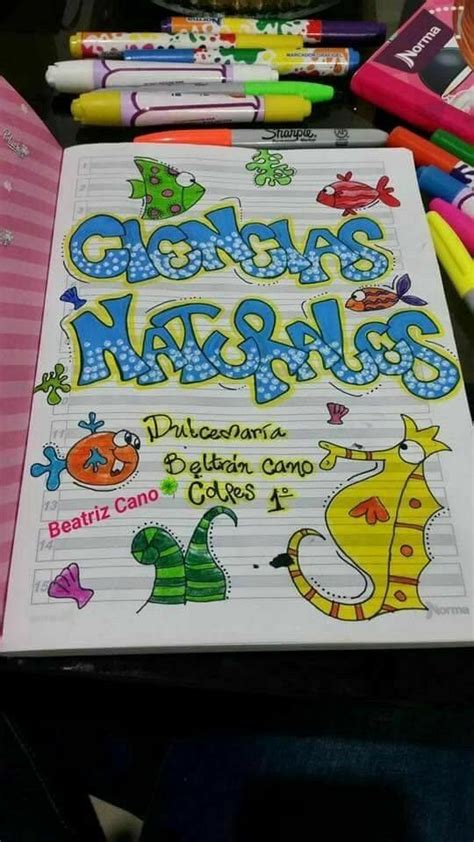 Norma
Sharpie
CIENCIAS
NATURALES
Dulcemaría
Beltrán Cano
Colfes 1º
Beatriz Cano
1
2
3
11
13
14
15
Norma